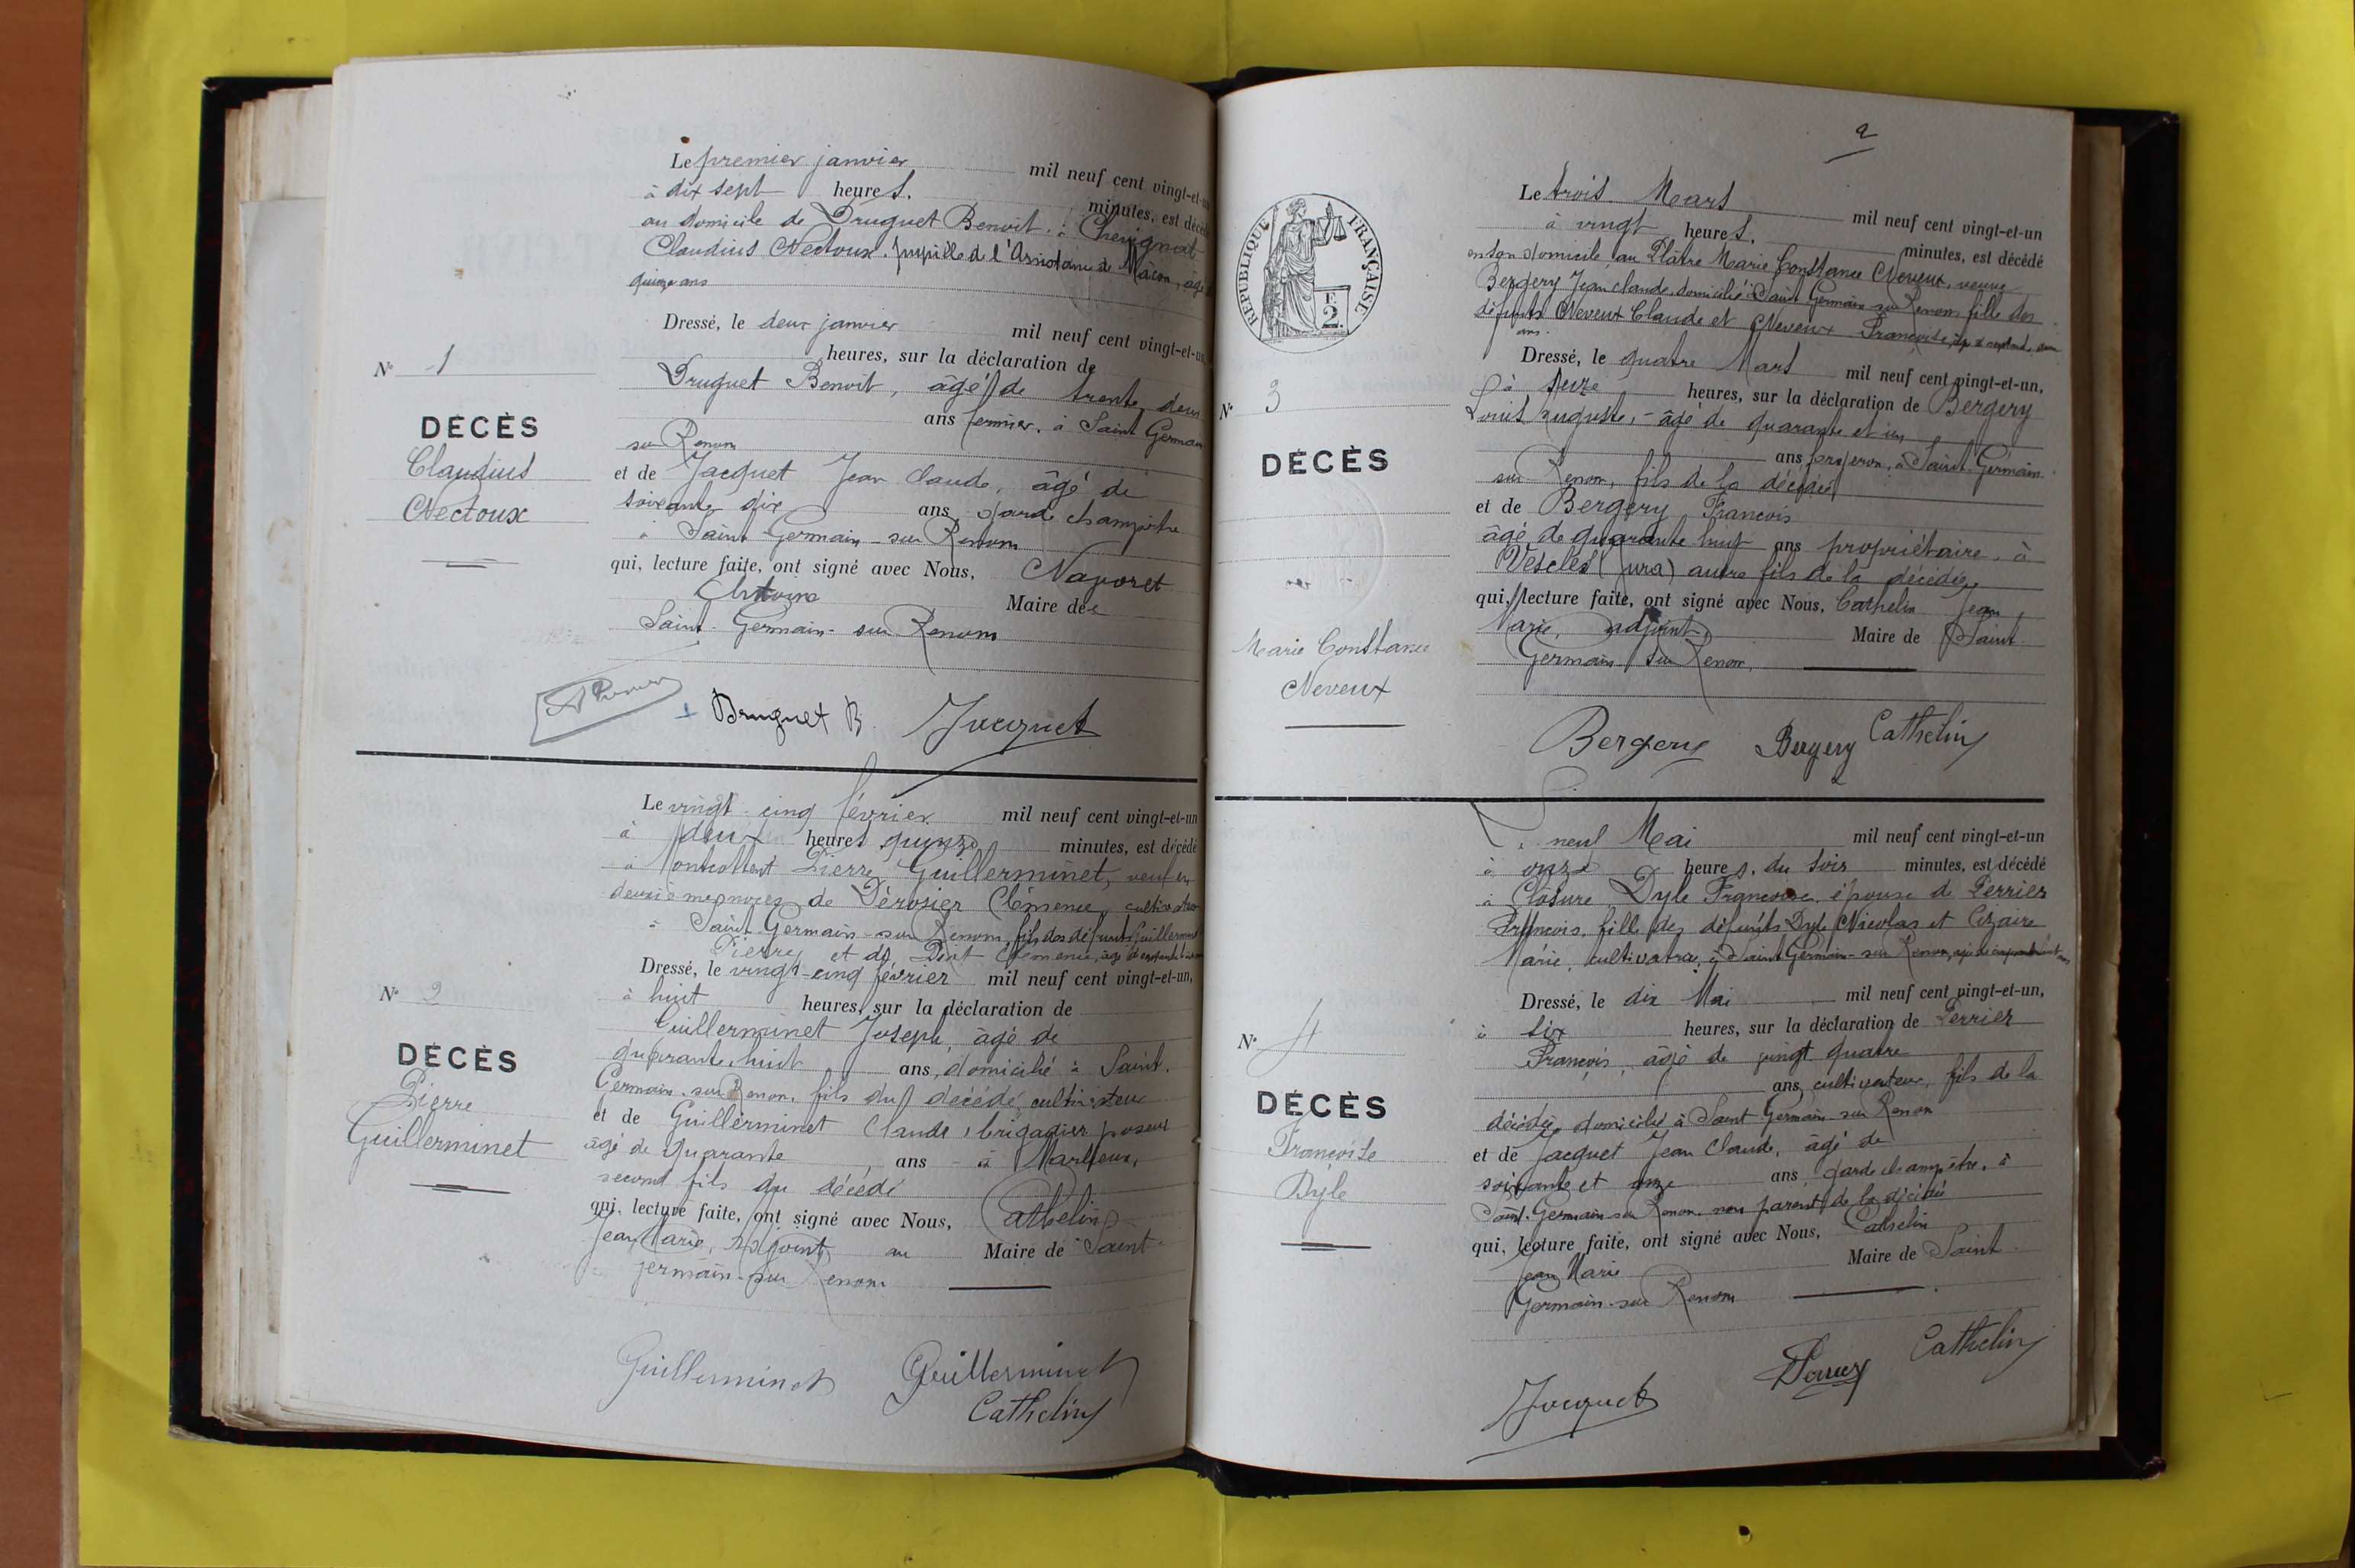 Le premier janvier mil neuf cent vingt-et-un
à dix sept heures. minutes, est décédé
au domicile de Druguet Benoit. à Chevignat
Claudius Nectoux. pupille de l'Assistance de Mâcon, âgé
quinze ans
Dressé, le deux janvier mil neuf cent vingt-et-un,
heures, sur la déclaration de
Druguet Benoit, âgé de trente deux
ans fermier, à Saint Germain
sur Renom
et de Jacquet Jean Claude, âgé de
soixante dix ans garde champêtre
à Saint Germain-sur Renom
qui, lecture faite, ont signé avec Nous, Naporet
Antoine Maire de
Saint-Germain-sur Renom
Druguet B. Jacquet
N° 1
DÉCÈS
Claudius
Nectoux
Le vingt-cinq février mil neuf cent vingt-et-un
à deux heures quinze minutes, est décédé
à Pierre Guillerminet, veuf en
deuxièmes noces de Dérosier Clémence, cultivateur
à Saint-Germain-sur Renom, fils des défunts Guillerminet
Pierre, et de Clémence, âgé de
Dressé, le vingt-cinq février mil neuf cent vingt-et-un,
à huit heures, sur la déclaration de
Guillerminet Joseph, âgé de
quarante huit ans, domicilié à Saint-
Germain-sur Renon, fils du décédé, cultivateur
et de Guillerminet Claude, brigadier poseur
âgé de quarante ans à Marlieux,
second fils du décédé
qui, lecture faite, ont signé avec Nous, Cathelin
Jean Marie, adjoint au Maire de Saint-
Germain-sur Renom
Guillerminet Guillerminet
Cathelin
N° 2
DÉCÈS
Pierre
Guillerminet
2
RÉPUBLIQUE FRANÇAISE
2
Le trois Mars mil neuf cent vingt-et-un
à vingt heures. minutes, est décédé
en son domicile au Plâtre Marie Constance Neveux, veuve
Bergery Jean Claude, domiciliée à Saint Germain sur Renom fille des
défunts Neveux Claude et Neveux Françoise,
ans.
Dressé, le quatre Mars mil neuf cent vingt-et-un,
à seize heures, sur la déclaration de Bergery
Louis Auguste, âgé de quarante et un
ans à Saint-Germain
sur Renon, fils de la décédée
et de Bergery François
âgé de quarante huit ans propriétaire, à
Vescles (Jura) autre fils de la décédée
qui, lecture faite, ont signé avec Nous, Cathelin Jean
Marie, adjoint Maire de Saint-
Germain sur Renon.
Bergery Bergery Cathelin
N° 3
DÉCÈS
Marie Constance
Neveux
Le neuf Mai mil neuf cent vingt-et-un
à onze heures. du soir minutes, est décédé
à Closure, Dyle Françoise, épouse de Perrier
François, fille des défunts Dyle Nicolas et Cizaire
Marie, cultivatrice, à Saint Germain-sur Renon, âgée de
Dressé, le dix Mai mil neuf cent vingt-et-un,
à six heures, sur la déclaration de Perrier
François, âgé de vingt quatre
ans, cultivateur, fils de la
décédée domicilié à Saint Germain-sur Renon
et de Jacquet Jean Claude, âgé de
soixante et onze ans garde champêtre, à
Saint-Germain-sur Renon, non parent de la décédée
qui, lecture faite, ont signé avec Nous, Cathelin
Jean Marie Maire de Saint-
Germain-sur Renom
Jacquet Perrier Cathelin
N° 4
DÉCÈS
Françoise
Dyle